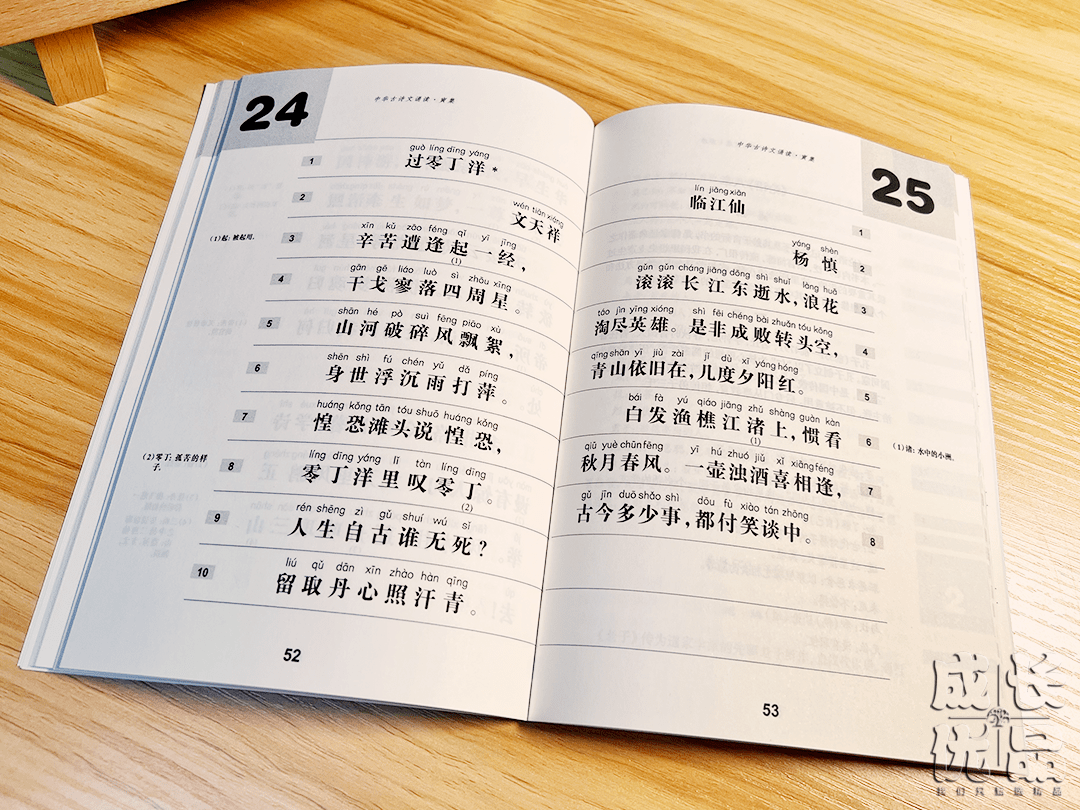 24
中华古诗文诵读·寅集
guò líng dīng yáng
1 过零丁洋*
wén tiān xiáng
2 文天祥
xīn kǔ zāo féng qǐ yì jīng
(1)起:被起用。 3 辛苦遭逢起一经,
(1)
gān gē liáo luò sì zhōu xīng
4 干戈寥落四周星。
shān hé pò suì fēng piāo xù
5 山河破碎风飘絮,
shēn shì fú chén yǔ dǎ píng
6 身世浮沉雨打萍。
huáng kǒng tān tóu shuō huáng kǒng
7 惶恐滩头说惶恐,
líng dīng yáng lǐ tàn líng dīng
(2)零丁:孤苦的样
子。
8 零丁洋里叹零丁。
(2)
rén shēng zì gǔ shuí wú sǐ
9 人生自古谁无死?
liú qǔ dān xīn zhào hàn qīng
10 留取丹心照汗青。
52
中华古诗文诵读·寅集
25
lín jiāng xiān
临江仙 1
yáng shèn
杨慎 2
gǔn gǔn cháng jiāng dōng shì shuǐ làng huā
滚滚长江东逝水,浪花 3
táo jìn yīng xióng shì fēi chéng bài zhuǎn tóu kōng
淘尽英雄。是非成败转头空, 4
qīng shān yī jiù zài jǐ dù xī yáng hóng
青山依旧在,几度夕阳红。 5
bái fà yú qiáo jiāng zhǔ shàng guàn kàn
白发渔樵江渚上,惯看 6
(1)
(1)渚:水中的小洲。
qiū yuè chūn fēng yì hú zhuó jiǔ xǐ xiāng féng
秋月春风。一壶浊酒喜相逢, 7
gǔ jīn duō shǎo shì dōu fù xiào tán zhōng
古今多少事,都付笑谈中。 8
53
成长
优品